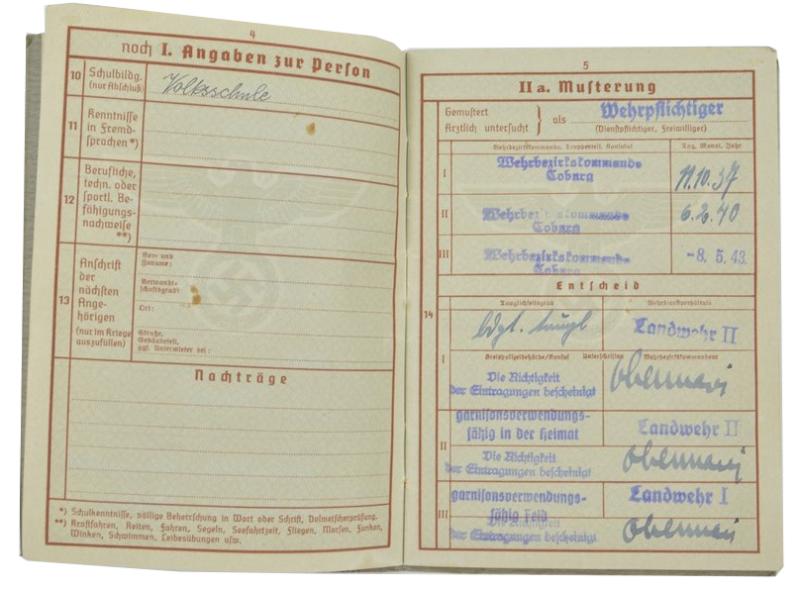 4
noch I. Angaben zur Person
10 Schulbildg. (nur Abschluß)
Volksschule
11 Kenntnisse in Fremdsprachen*)
12 Berufliche, techn. oder sportl. Befähigungsnachweise **)
13 Anschrift der nächsten Angehörigen (nur im Kriege auszufüllen)
Vor- und Zuname:
Verwandtschaftsgrad:
Ort:
Straße, Gebäudeteil, ggf. Untermieter bei:
Nachträge
*) Schulkenntnisse, völlige Beherrschung in Wort oder Schrift, Dolmetscherprüfung.
**) Kraftfahren, Reiten, Fahren, Segeln, Seefahrtzeit, Fliegen, Morsen, Funken,
Winken, Schwimmen, Leibesübungen usw.
5
II a. Musterung
Gemustert
Ärztlich untersucht } als Wehrpflichtiger
(Dienstpflichtiger, Freiwilliger)
Tag, Monat, Jahr
I Wehrbezirkskommando
Coburg
11.10.37
II Wehrbezirkskommando
Coburg
6.2.40
III Wehrbezirkskommando
Coburg
-8. 5. 43.
Entscheid
14
Tauglichkeitsgrad Wehrdienstverhältnis
I
Landwehr II
Kreispolizeibehörde/Konsul Unterschriften Wehrbezirkskommandeur
Die Richtigkeit
der Eintragungen bescheinigt
II
garnisonsverwendungs-
fähig in der Heimat
Landwehr II
Die Richtigkeit
der Eintragungen bescheinigt
III
garnisonsverwendungs-
fähig Feld
Landwehr I
Die Richtigkeit
der Eintragungen bescheinigt